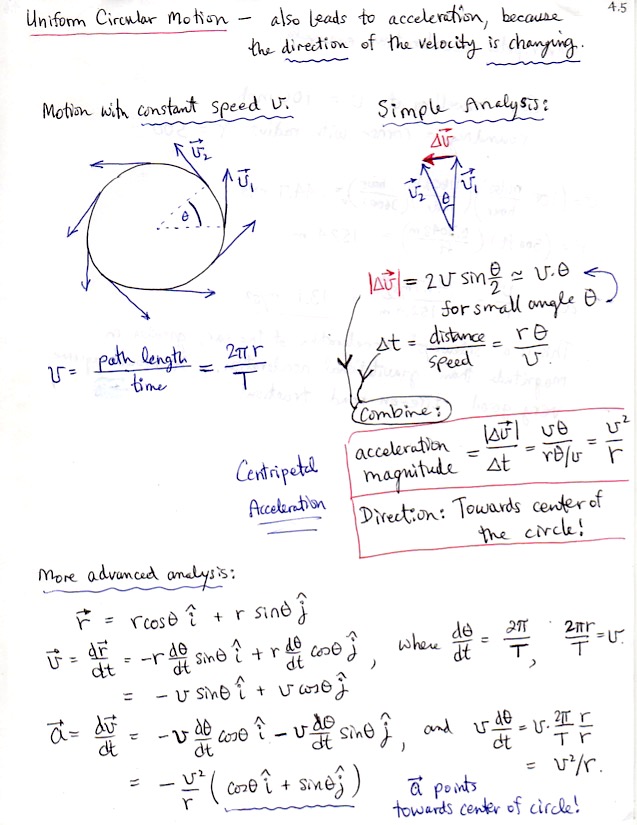 4.5
Uniform Circular Motion — also leads to acceleration, because
the direction of the velocity is changing.
Motion with constant speed v.
Simple Analysis:
v⃗₂
v⃗₁
θ
Δv⃗
v⃗₂
θ
v⃗₁
|Δv⃗| = 2v sin θ/2 ≃ v·θ
for small angle θ
Δt = distance/speed = rθ/v.
v = path length/time = 2πr/T
Combine:
acceleration magnitude = |Δv⃗|/Δt = vθ/(rθ/v) = v²/r
Centripetal
Acceleration
Direction: Towards center of
the circle!
More advanced analysis:
r⃗ = r cosθ î + r sinθ ĵ
v⃗ = dr⃗/dt = -r dθ/dt sinθ î + r dθ/dt cosθ ĵ, where dθ/dt = 2π/T, 2πr/T = v.
= - v sinθ î + v cosθ ĵ
a⃗ = dv⃗/dt = -v dθ/dt cosθ î - v dθ/dt sinθ ĵ, and v dθ/dt = v· 2π/T r/r
= - v²/r ( cosθ î + sinθ ĵ )
= v²/r.
a⃗ points
towards center of circle!